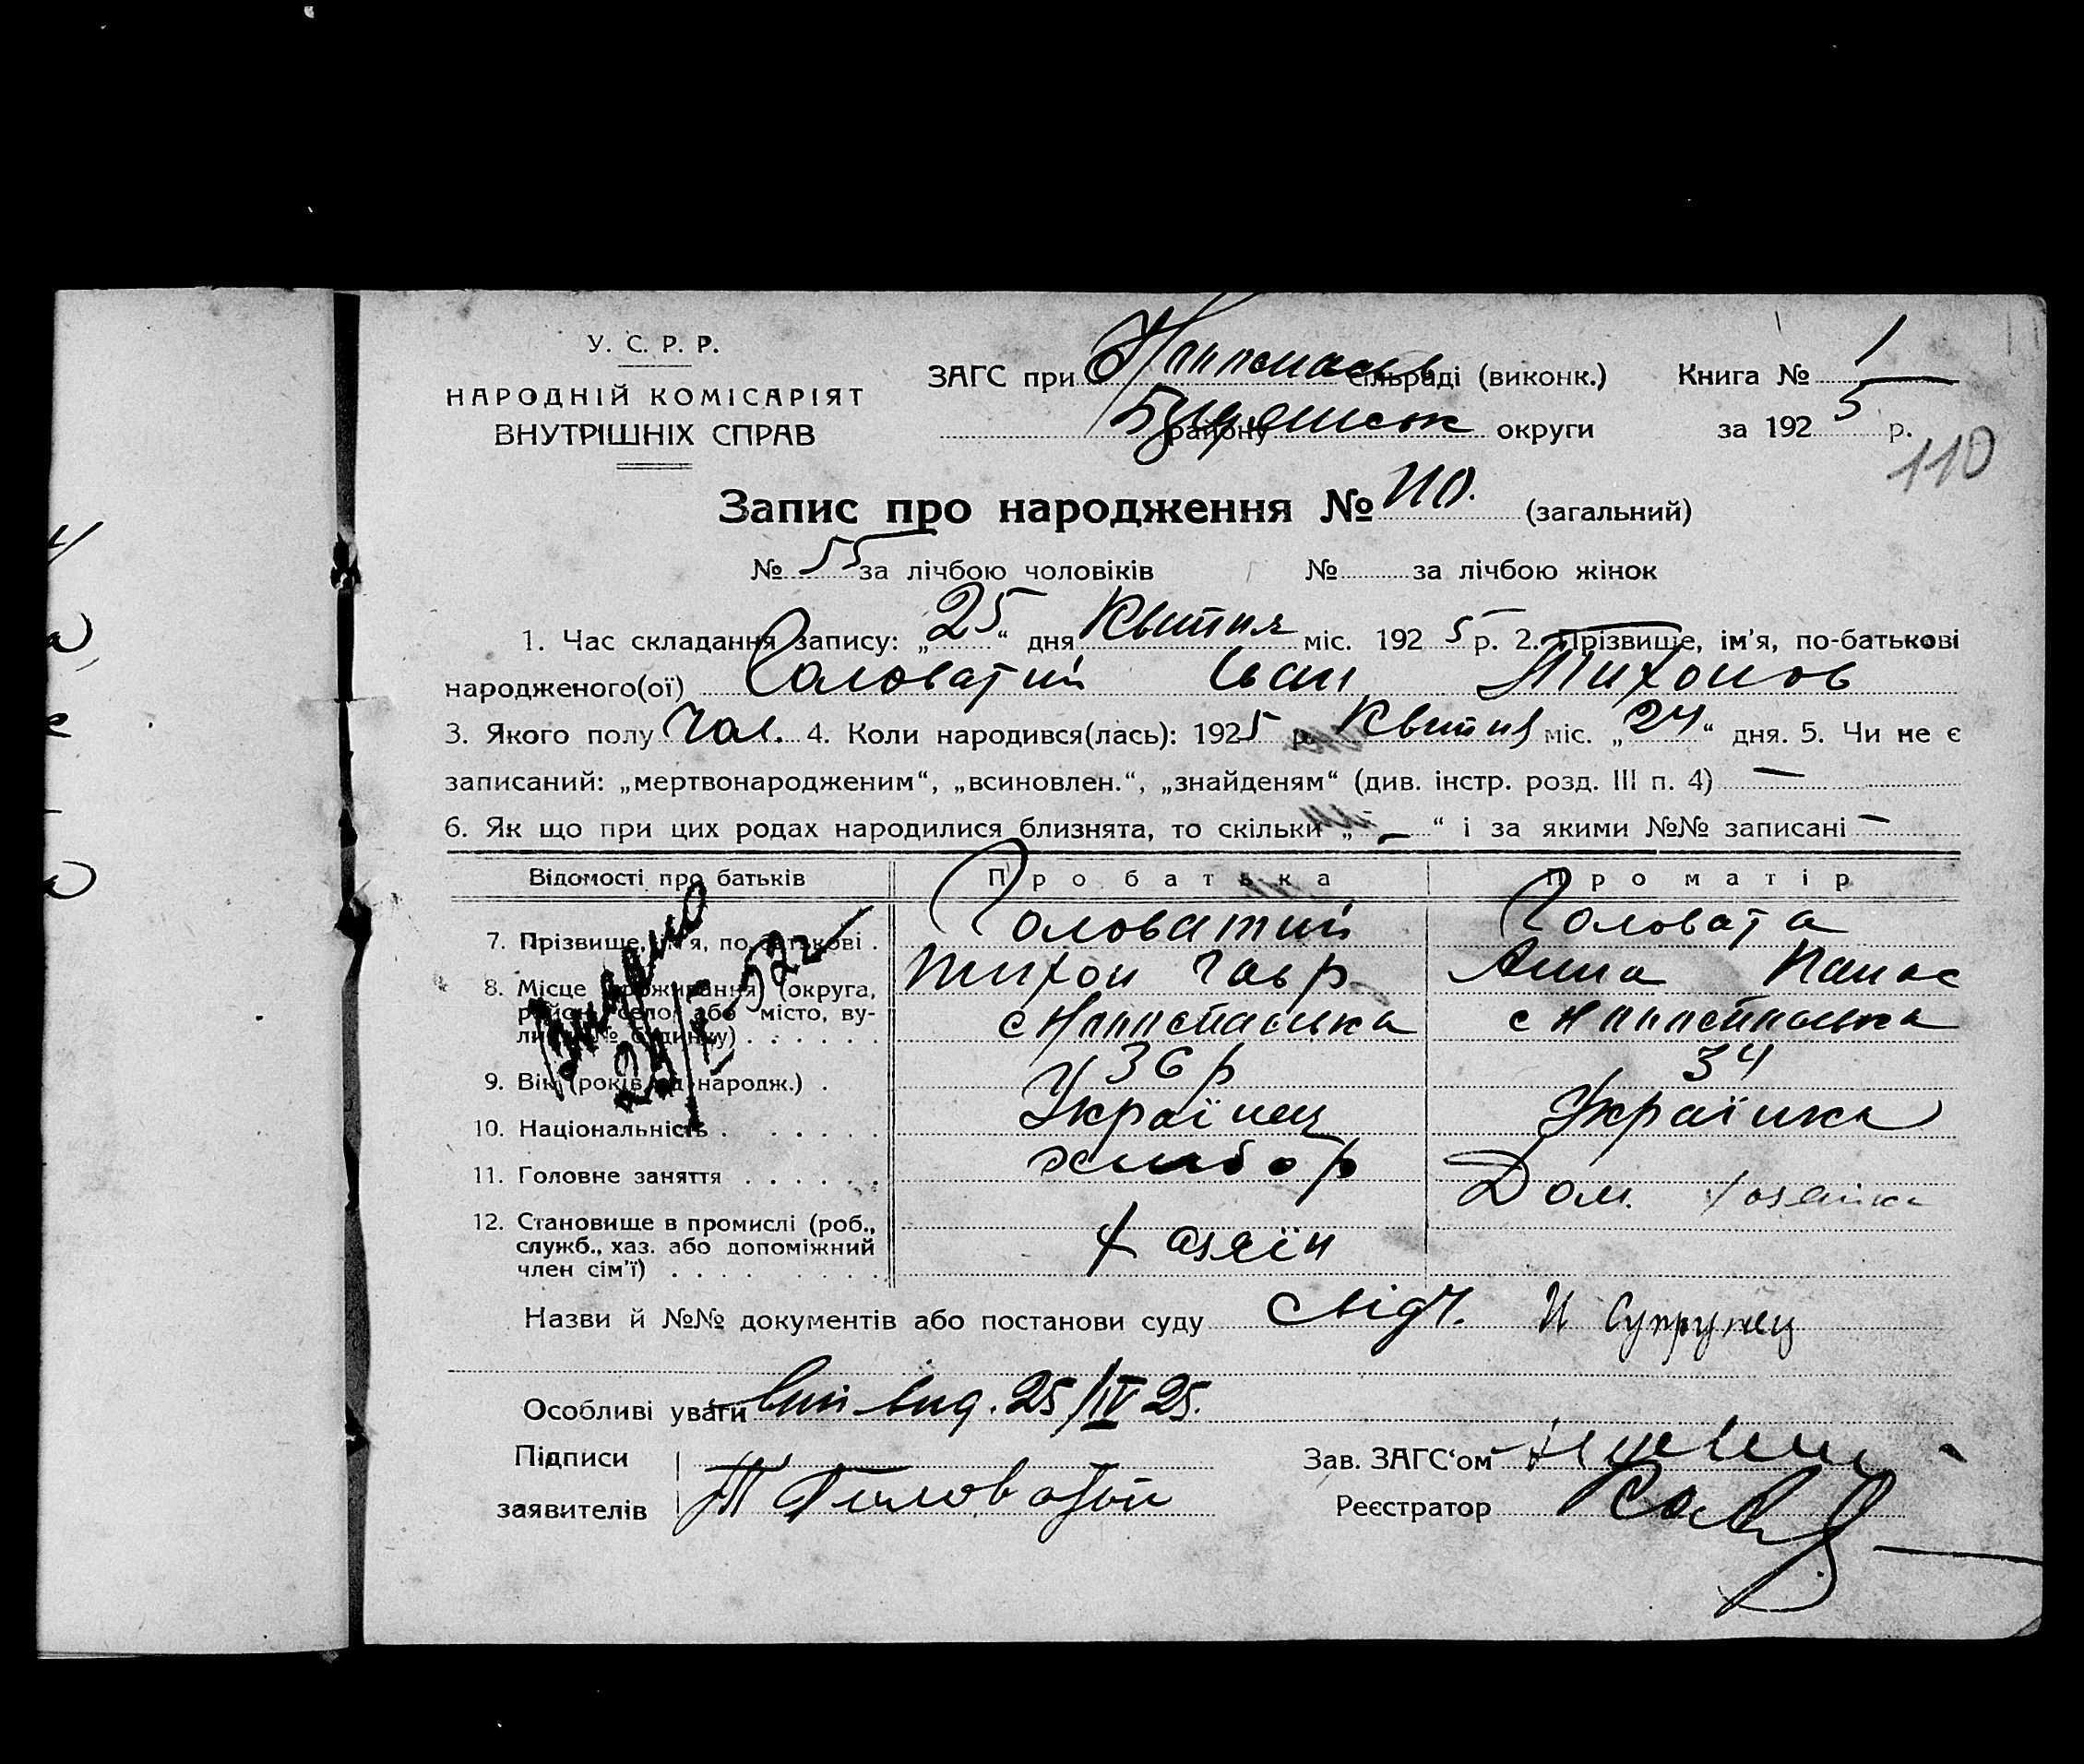 У. С. Р. Р.
НАРОДНІЙ КОМІСАРІЯТ
ВНУТРІШНІХ СПРАВ
ЗАГС при сільраді (виконк.) Книга № 1
району округи за 1925 р.
110
Запис про народження № 110. (загальний)
№ 55 за лічбою чоловіків № за лічбою жінок
1. Час складання запису: „25“ дня Квитня міс. 1925 р. 2. Прізвище, ім'я, по-батькові
народженого(ої) Головатий Іван Тихонов
3. Якого полу Чол. 4. Коли народився(лась): 1925 р. Квитня міс. „24“ дня. 5. Чи не є
записаний: „мертвонародженим“, „всиновлен.“, „знайденям“ (див. інстр. розд. III п. 4) —
6. Як що при цих родах народилися близнята, то скільки „—“ і за якими №№ записані —
Відомості про батьків Про батька Про матір
7. Прізвище, ім'я, по батькові . Головатий Головата
Тихон Гавр Анна Панас
8. Місце проживання (округа,
район, село або місто, ву-
лиця, № будинку) . . . . . .
9. Вік (років від народж.) . 36 р 34
10. Національність . . . . . Українец Українка
11. Головне заняття . . . . . . хлибор Дом. хозяйка
12. Становище в промислі (роб.,
служб., хаз. або допоміжний
член сім'ї) . . . . . . . . . хозяїн
Назви й №№ документів або постанови суду свідч. И Супрунец
Особливі уваги вип вид. 25/IV 25.
Підписи
заявителів Т Головатый
Зав. ЗАГС'ом
Реєстратор